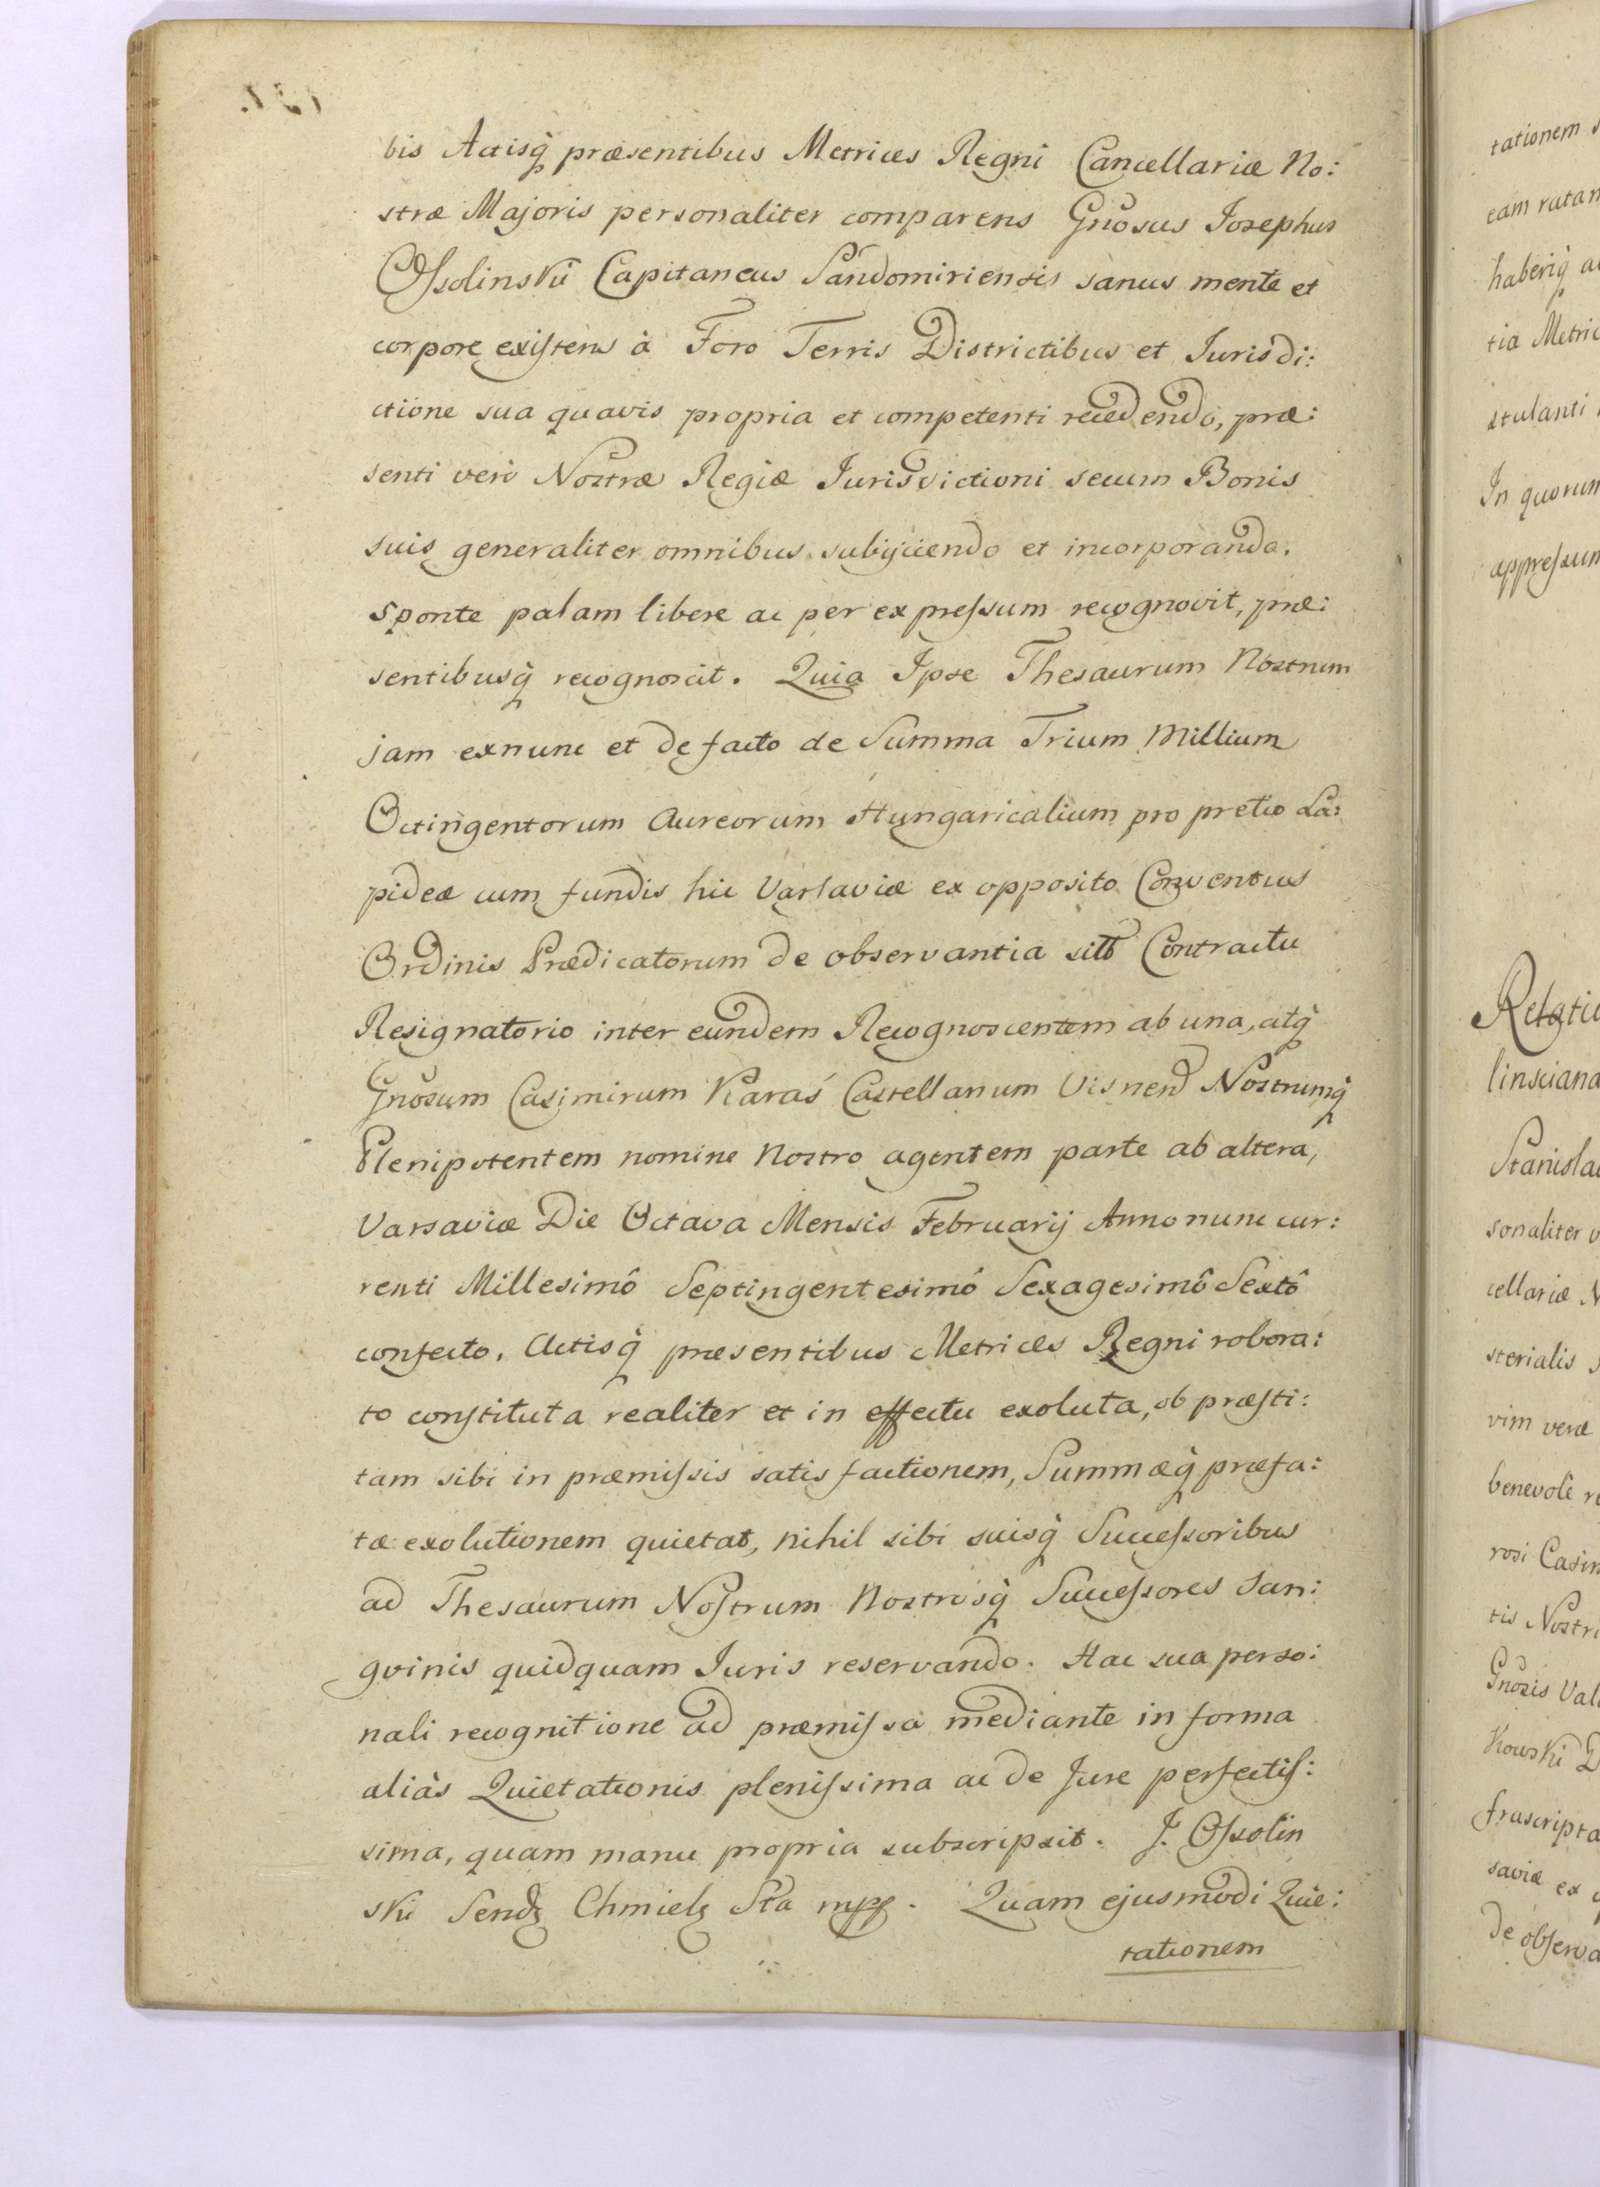 bis Actisq̀ præsentibus Metrices Regni Cancellariæ No:
stræ Majoris personaliter comparens Gñosus Josephus
Ossolinski Capitaneus Sandomiriensis sanus mente et
corpore existens à Foro Terris Districtibus et Jurisdi:
ctione sua quavis propria et competenti recedendo, præ:
senti verò Nostræ Regiæ Jurisdictioni secum Bonis
suis generaliter omnibus subijciendo et incorporando.
sponte palam libere ac per expressum recognovit, præ:
sentibusq̀ recognoscit. Quia Ipse Thesaurum Nostrum
jam exnunc et de facto de Summa Trium Millium
Octingentorum Aureorum Hungaricalium pro pretio La:
pideæ cum fundis hic Varsaviæ ex opposito Conventus
Ordinis Prædicatorum de observantia sitõ Contractu
Resignatorio inter eundem Recognoscentem ab una, atq̀
Gñosum Casimirum Karaś Castellanum Visnen̄ Nostrumq̀
Plenipotentem nomine Nostro agentem parte ab altera,
Varsaviæ Die Octava Mensis Februarij Anno nunc cur:
renti Millesimô Septingentesimô Sexagesimô Sextô
confecto, Actisq̀ præsentibus Metrices Regni robora:
to constituta realiter et in effectu exoluta, ob præsti:
tam sibi in præmissis satisfactionem, Summæq̀ præfa:
tæ exolutionem quietat, nihil sibi suisq̀ Successoribus
ad Thesaurum Nostrum Nostrosq̀ Successores San:
gvinis quidquam Juris reservando. Hac sua perso:
nali recognitione ad præmissa mediante in forma
aliàs Quietationis plenissima ac de Jure perfectis:
sima, quam manu propria subscripsit. J. Ossolin
ski Sendz Chmielz Sta mpp. Quam ejusmodi Quie:
tationem
tationem
eam ratam
haberiq̀
tia Metric
stulanti
In quorum
appressum
Relatio
linsciana
Stanisla
sonaliter
cellariæ N
sterialis
vim veræ
benevolè
rosi Casim
tis Nostri
Gñosis Val
kowski
frascripta
saviæ ex
de observa